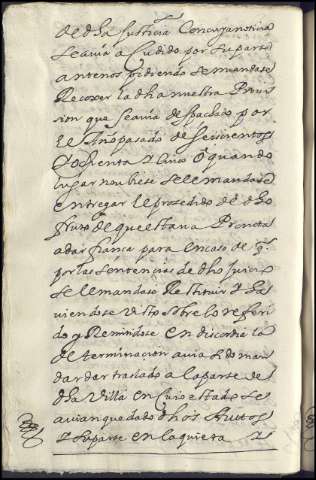 de dha Justicia Con
se avia acudido por su parte
ante nos pidiendo se mandase
Recoxer la dha nuestra Provi
sion que se avia despachado por
El Año pasado de seiscientos
Ochenta y Cinco O quando
lugar no ubiese se le mandase
entregar el prozedido de dho
fruto de que estava Prompta
a dar fiança para en caso de q.
por las sentencias de dho Juicio
se le mandase Restituir y Se
viendose Visto sobre lo referi
do y Remitidose en discordia la
determinacion avia sido man
dar dar traslado a la parte de
dha Villa en Cuio estado se
avian quedado dhos frutos
y su parte en la quieta y